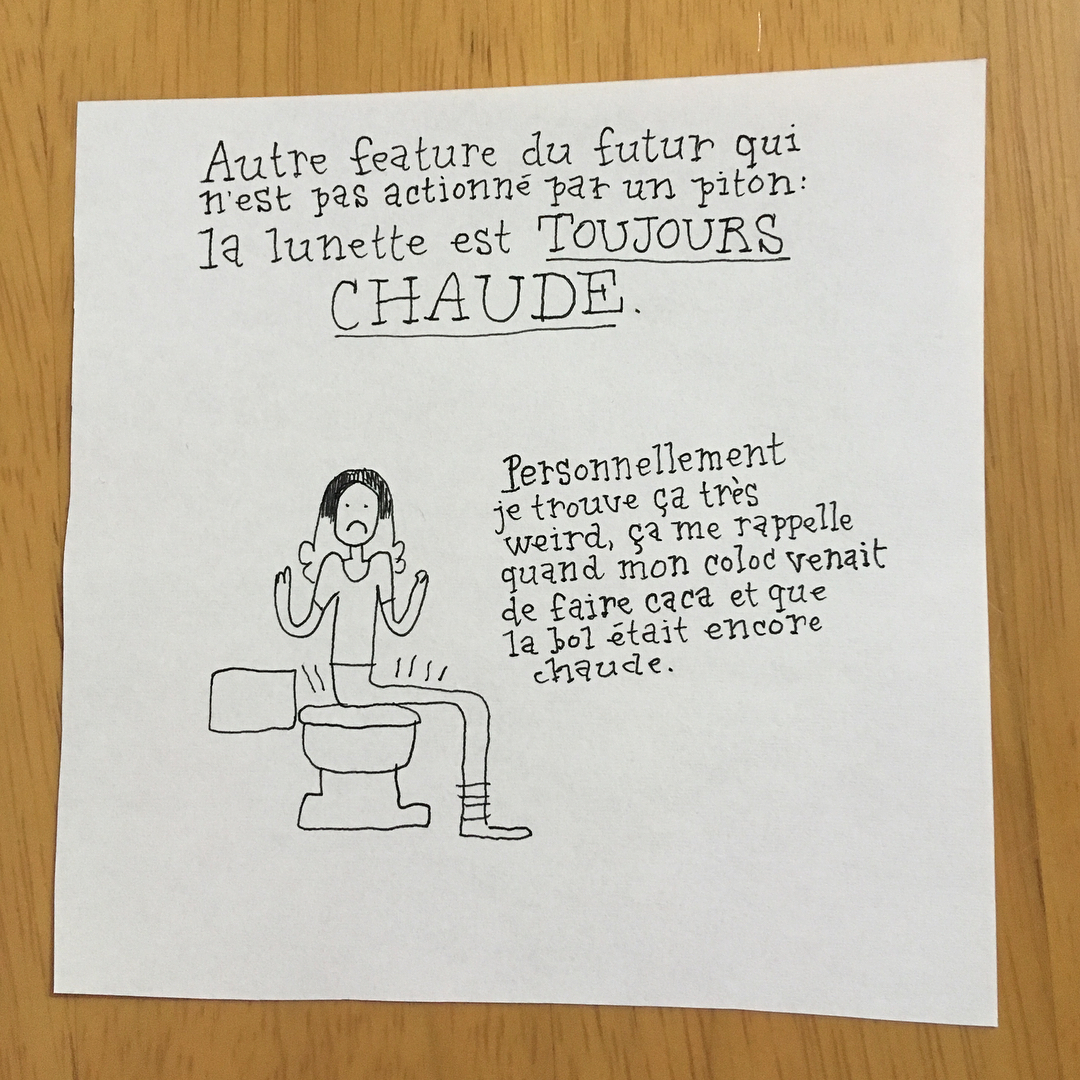 Autre feature du futur qui
n'est pas actionné par un piton:
la lunette est TOUJOURS
CHAUDE.
Personnellement
je trouve ça très
weird, ça me rappelle
quand mon coloc venait
de faire caca et que
la bol était encore
chaude.